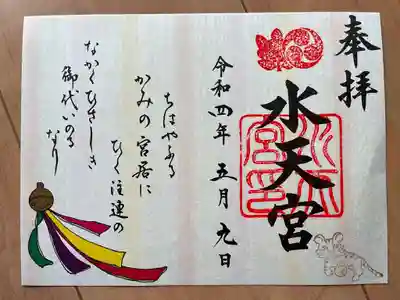 奉拝
水天宮
水天宮印
令和四年五月九日
ちはやふる
かみの宮居に
ひく注連の
なかくひさしき
御代いのる
なり